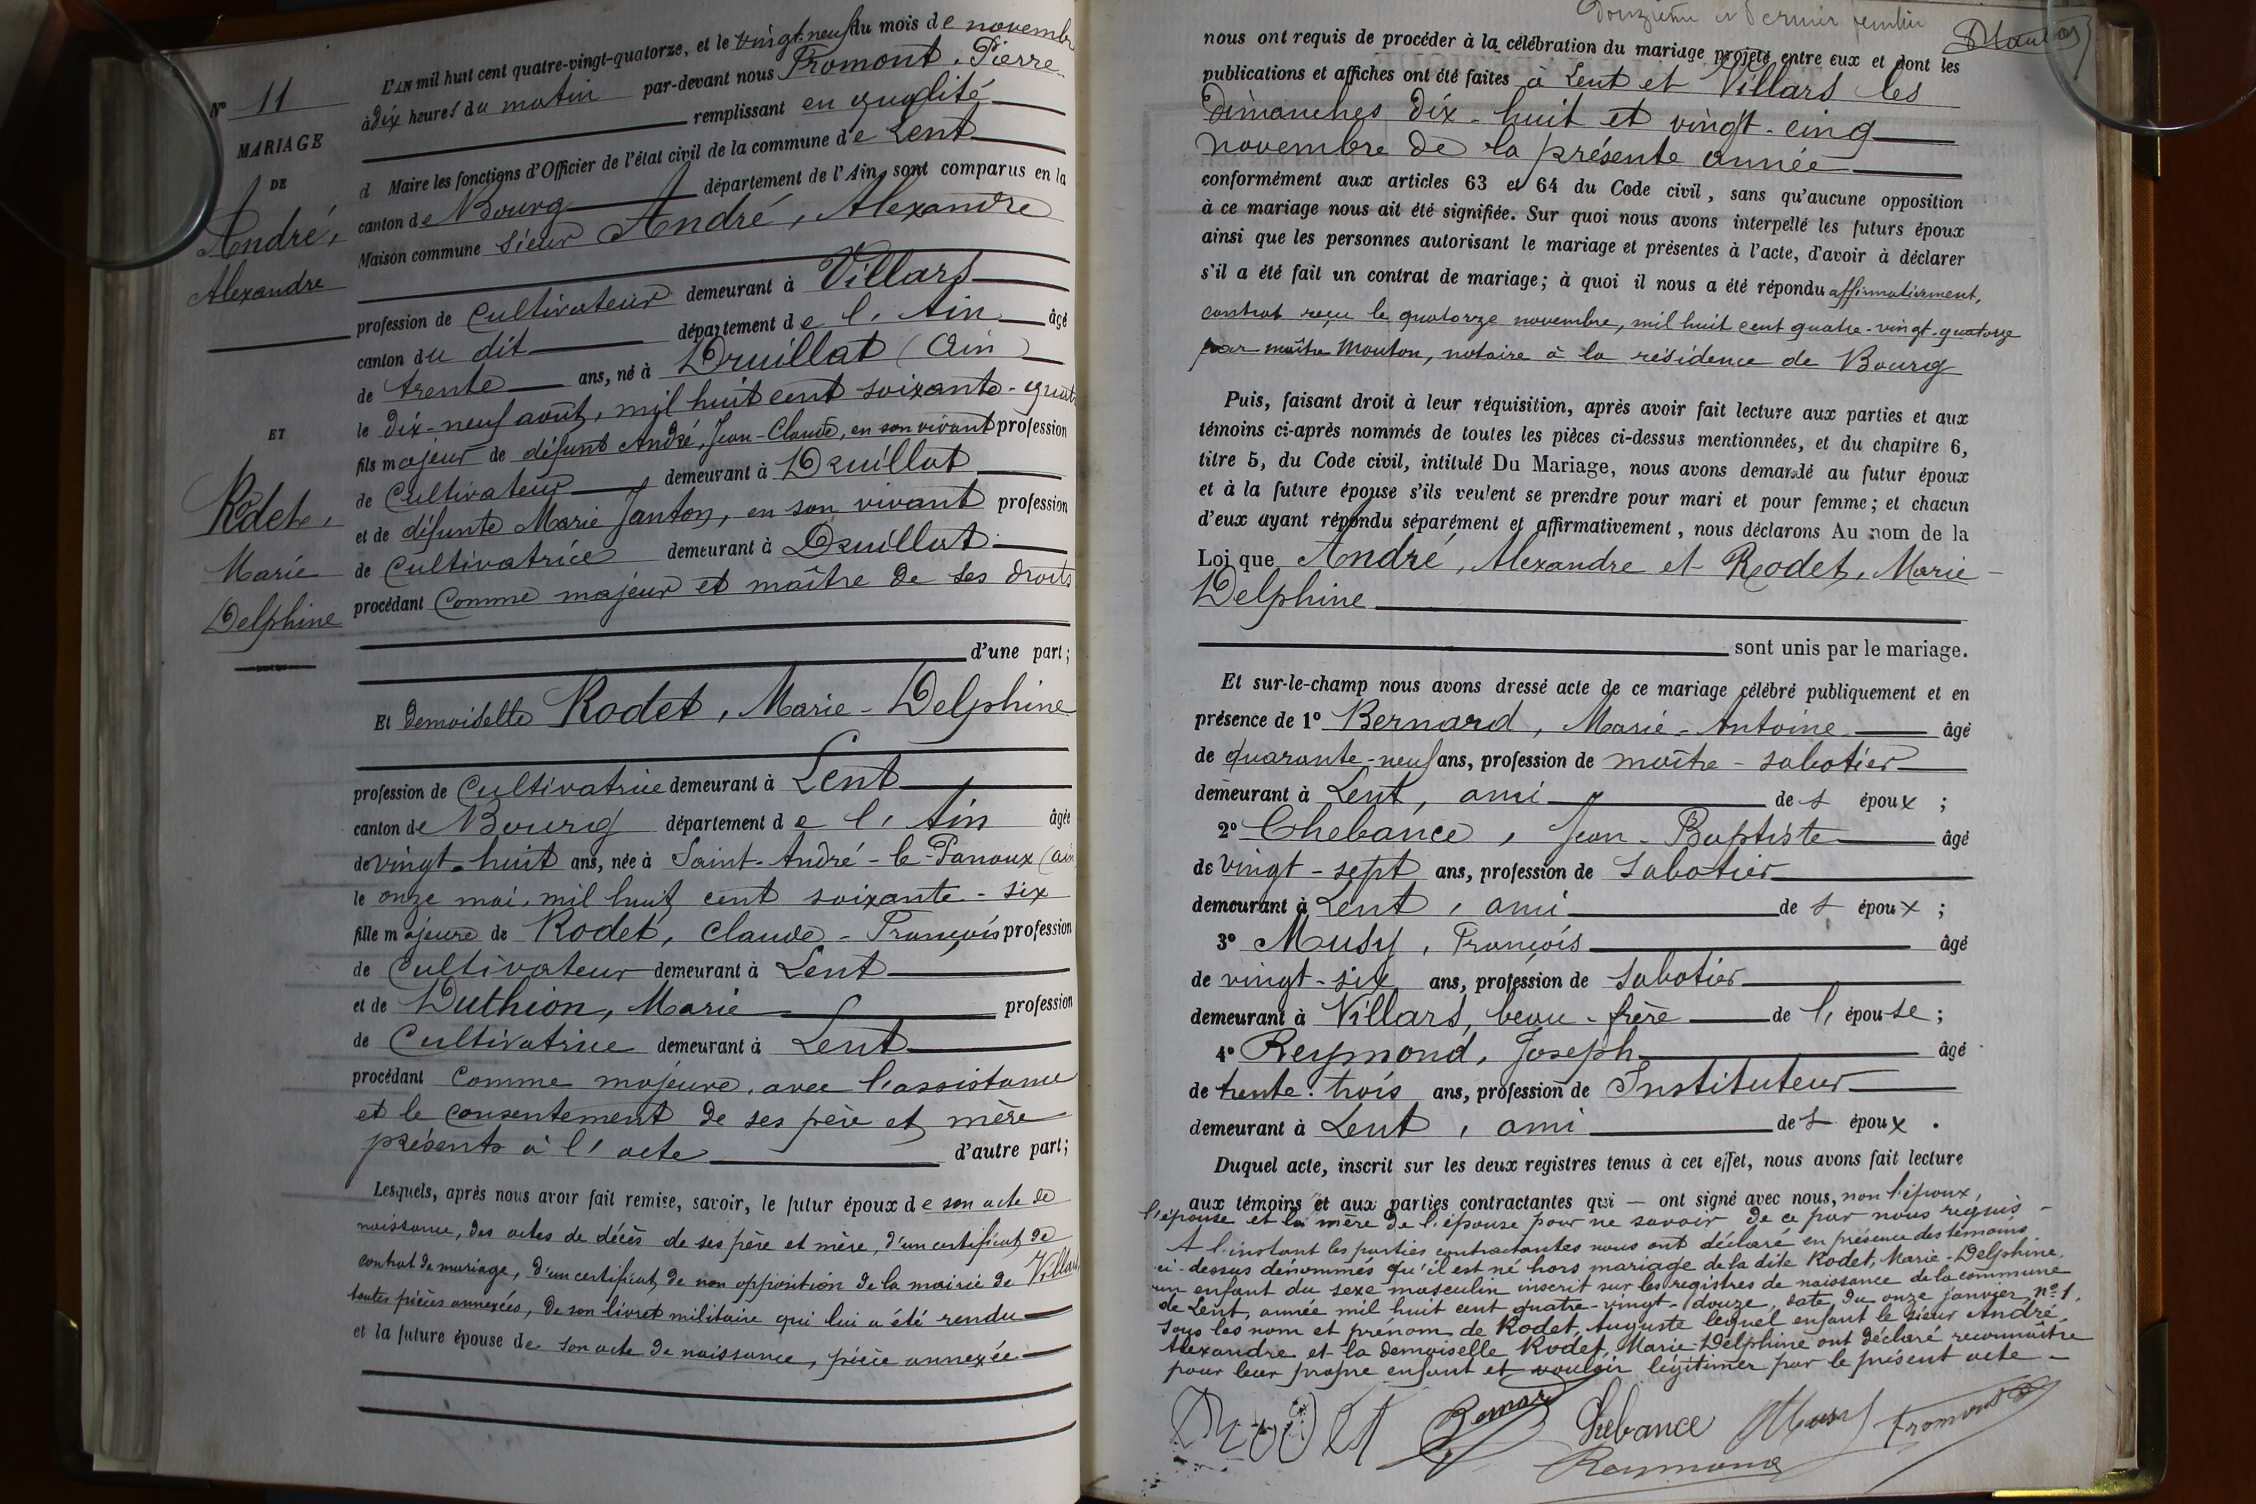 N° 11
MARIAGE
DE
André,
Alexandre
ET
Rodet,
Marie
Delphine
L'AN mil huit cent quatre-vingt-quatorze, et le vingt-neuf du mois de novembre
à dix heures du matin par-devant nous Fromont, Pierre
remplissant en qualité
d Maire les fonctions d'Officier de l'état civil de la commune de Lent
canton de Bourg département de l'Ain, sont comparus en la
Maison commune sieur André, Alexandre
profession de Cultivateur demeurant à Villars
canton du dit département de l'Ain âgé
de trente ans, né à Druillat (Ain)
le dix-neuf août, mil huit cent soixante-quatre
fils majeur de défunt André, Jean-Claude, en son vivant profession
de Cultivateur demeurant à Druillat
et de défunte Marie Janton, en son vivant profession
de Cultivatrice demeurant à Druillat
procédant Comme majeur et maître de ses droits
d'une part;
Et demoiselle Rodet, Marie-Delphine
profession de Cultivatrice demeurant à Lent
canton de Bourg département de l'Ain âgée
de vingt-huit ans, née à Saint-André-le-Panoux (Ain
le onze mai, mil huit cent soixante-six
fille majeure de Rodet, Claude-François profession
de Cultivateur demeurant à Lent
et de Duthion, Marie profession
de Cultivatrice demeurant à Lent
procédant Comme majeure, avec l'assistance
et le consentement de ses père et mère
présents à l'acte d'autre part;
Lesquels, après nous avoir fait remise, savoir, le futur époux de son acte de
naissance, des actes de décès de ses père et mère, d'un certificat de
contrat de mariage, d'un certificat de non opposition de la mairie de Villars
toutes pièces annexées, de son livret militaire qui lui a été rendu
et la future épouse de son acte de naissance, pièce annexée
Douzième et dernier feuillet
nous ont requis de procéder à la célébration du mariage projeté entre eux et dont les
publications et affiches ont été faites à Lent et Villars les
dimanches dix-huit et vingt-cinq
novembre de la présente année
conformément aux articles 63 et 64 du Code civil, sans qu'aucune opposition
à ce mariage nous ait été signifiée. Sur quoi nous avons interpellé les futurs époux
ainsi que les personnes autorisant le mariage et présentes à l'acte, d'avoir à déclarer
s'il a été fait un contrat de mariage; à quoi il nous a été répondu affirmativement,
contrat reçu le quatorze novembre, mil huit cent quatre-vingt-quatorze
par maître Mouton, notaire à la résidence de Bourg
Puis, faisant droit à leur réquisition, après avoir fait lecture aux parties et aux
témoins ci-après nommés de toutes les pièces ci-dessus mentionnées, et du chapitre 6,
titre 5, du Code civil, intitulé Du Mariage, nous avons demandé au futur époux
et à la future épouse s'ils veulent se prendre pour mari et pour femme; et chacun
d'eux ayant répondu séparément et affirmativement, nous déclarons Au nom de la
Loi que André, Alexandre et Rodet, Marie-
Delphine
sont unis par le mariage.
Et sur-le-champ nous avons dressé acte de ce mariage célébré publiquement et en
présence de 1° Bernard, Marie-Antoine âgé
de quarante-neuf ans, profession de maître-sabotier
demeurant à Lent, ami des époux;
2° Chebance, Jean-Baptiste âgé
de vingt-sept ans, profession de Sabotier
demeurant à Lent, ami des époux;
3° Musy, François âgé
de vingt-six ans, profession de Sabotier
demeurant à Villars, beau-frère de l'épouse;
4° Reymond, Joseph âgé
de trente-trois ans, profession de Instituteur
demeurant à Lent, ami des époux.
Duquel acte, inscrit sur les deux registres tenus à cet effet, nous avons fait lecture
aux témoins et aux parties contractantes qui — ont signé avec nous, non l'époux,
l'épouse et la mère de l'épouse pour ne savoir de ce par nous requis -
A l'instant les parties contractantes nous ont déclaré en présence des témoins
ci-dessus dénommés qu'il est né hors mariage de la dite Rodet, Marie-Delphine,
un enfant du sexe masculin inscrit sur les registres de naissance de la commune
de Lent, année mil huit cent quatre-vingt-douze, date du onze janvier, n° 1,
sous les nom et prénom de Rodet, Auguste lequel enfant le sieur André,
Alexandre et la demoiselle Rodet, Marie-Delphine ont déclaré reconnaître
pour leur propre enfant et vouloir légitimer par le présent acte -
Rodet Bernard Chebance Musy Fromont
Reymond